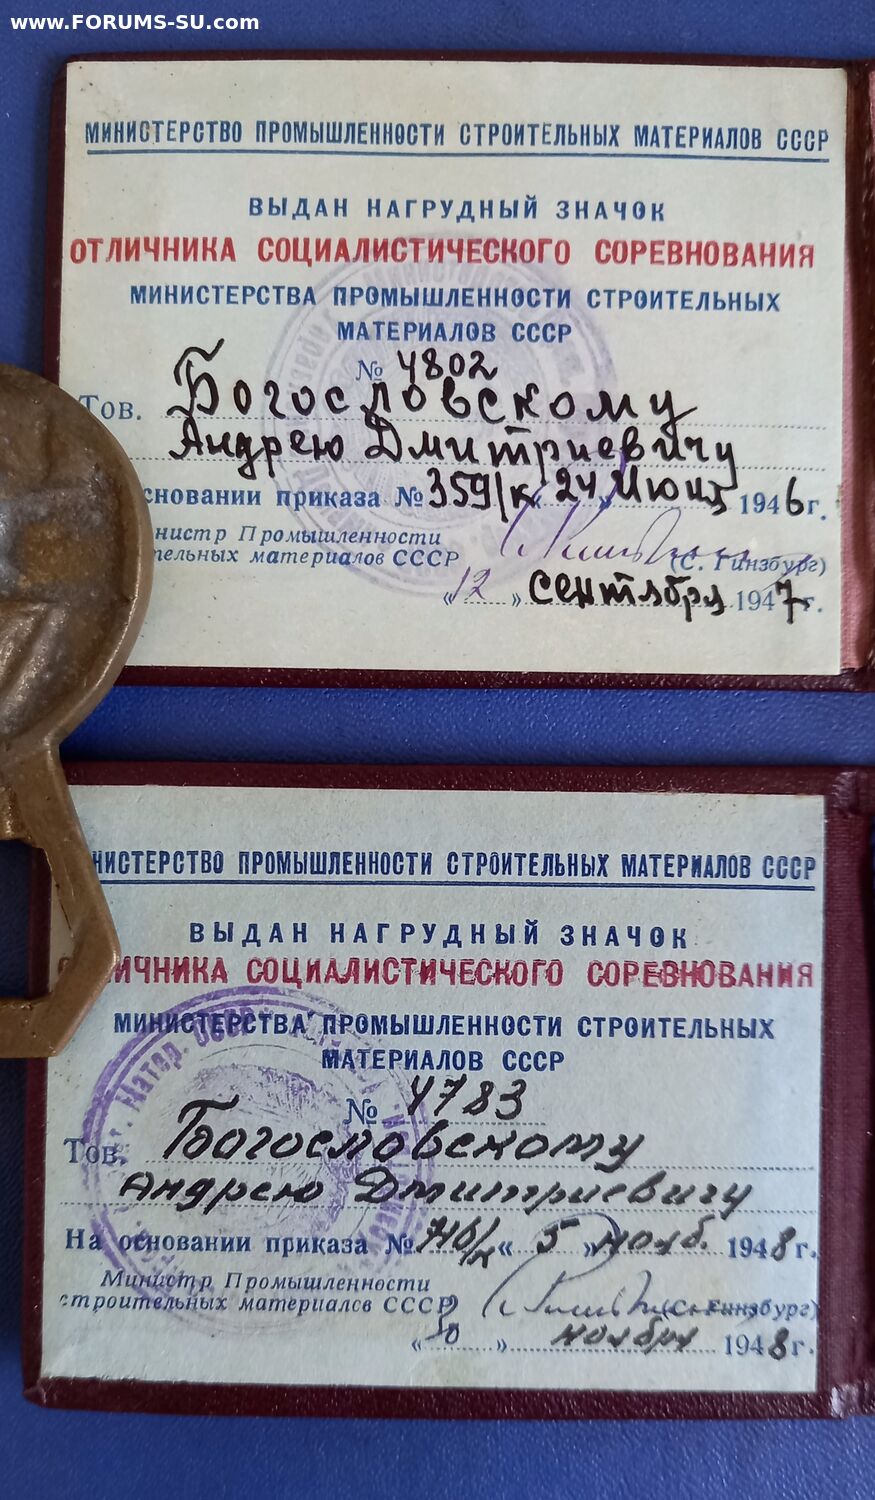 www.FORUMS-SU.com
МИНИСТЕРСТВО ПРОМЫШЛЕННОСТИ СТРОИТЕЛЬНЫХ МАТЕРИАЛОВ СССР
ВЫДАН НАГРУДНЫЙ ЗНАЧОК
ОТЛИЧНИКА СОЦИАЛИСТИЧЕСКОГО СОРЕВНОВАНИЯ
МИНИСТЕРСТВА ПРОМЫШЛЕННОСТИ СТРОИТЕЛЬНЫХ
МАТЕРИАЛОВ СССР
№ 4802
Тов. Богословскому
Андрею Дмитриевичу
сновании приказа № 359/к «24» Июня 1946 г.
нистр Промышленности
тельных материалов СССР (С. Гинзбург)
«12» Сентября 1947 г.
НИСТЕРСТВО ПРОМЫШЛЕННОСТИ СТРОИТЕЛЬНЫХ МАТЕРИАЛОВ СССР
ВЫДАН НАГРУДНЫЙ ЗНАЧОК
ИЧНИКА СОЦИАЛИСТИЧЕСКОГО СОРЕВНОВАНИЯ
МИНИСТЕРСТВА ПРОМЫШЛЕННОСТИ СТРОИТЕЛЬНЫХ
МАТЕРИАЛОВ СССР
№ 4783
Тов. Богословскому
Андрею Дмитриевичу
На основании приказа № «5» нояб. 1948 г.
Министр Промышленности
строительных материалов СССР (С. Гинзбург)
ноября 1948 г.